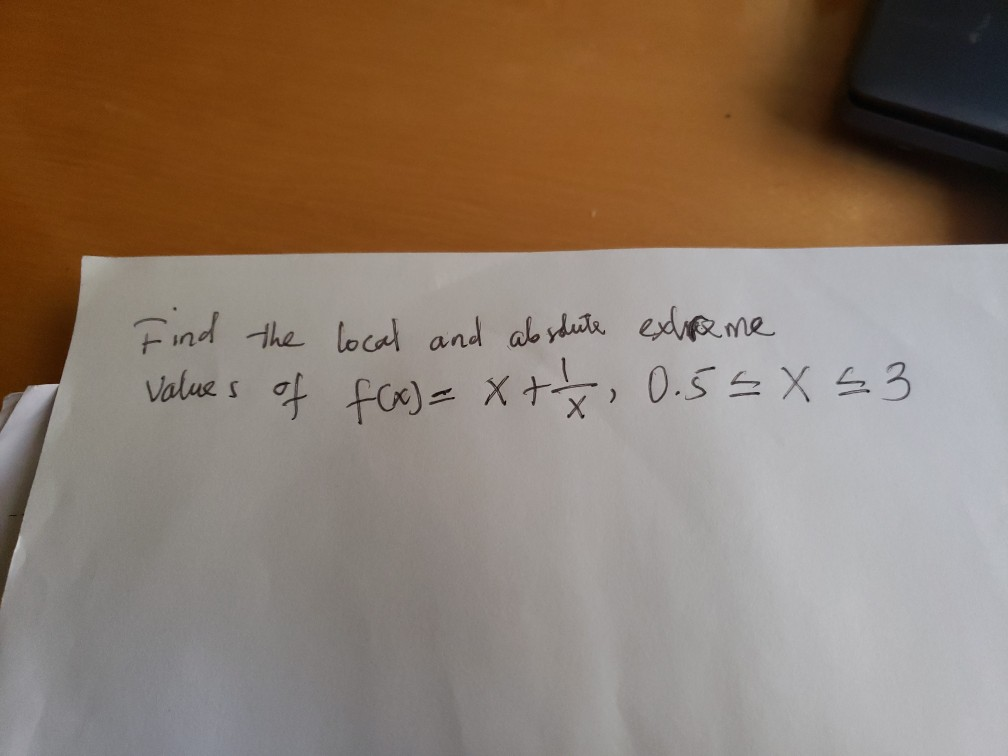 Find the local and absolute extreme
values of f(x) = x + 1/x, 0.5 ≤ x ≤ 3